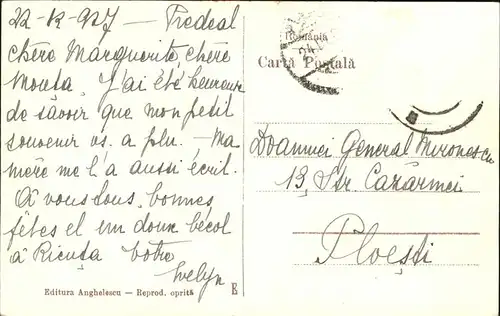 22-12-927 — Predeal
chère Marguerite, chère
Mouta. J'ai été heureuse
de savoir que mon petit
souvenir vs. a plu. — Ma
mère me l'a aussi écrit.
À vous tous, bonnes
fêtes et un doux bécot
à Ricuţa Votre
Evelyn
Editura Anghelescu — Reprod. oprită
România
Carta Poştală
Doamnei General Mironescu
13, Str Cazărmei
Ploeşti